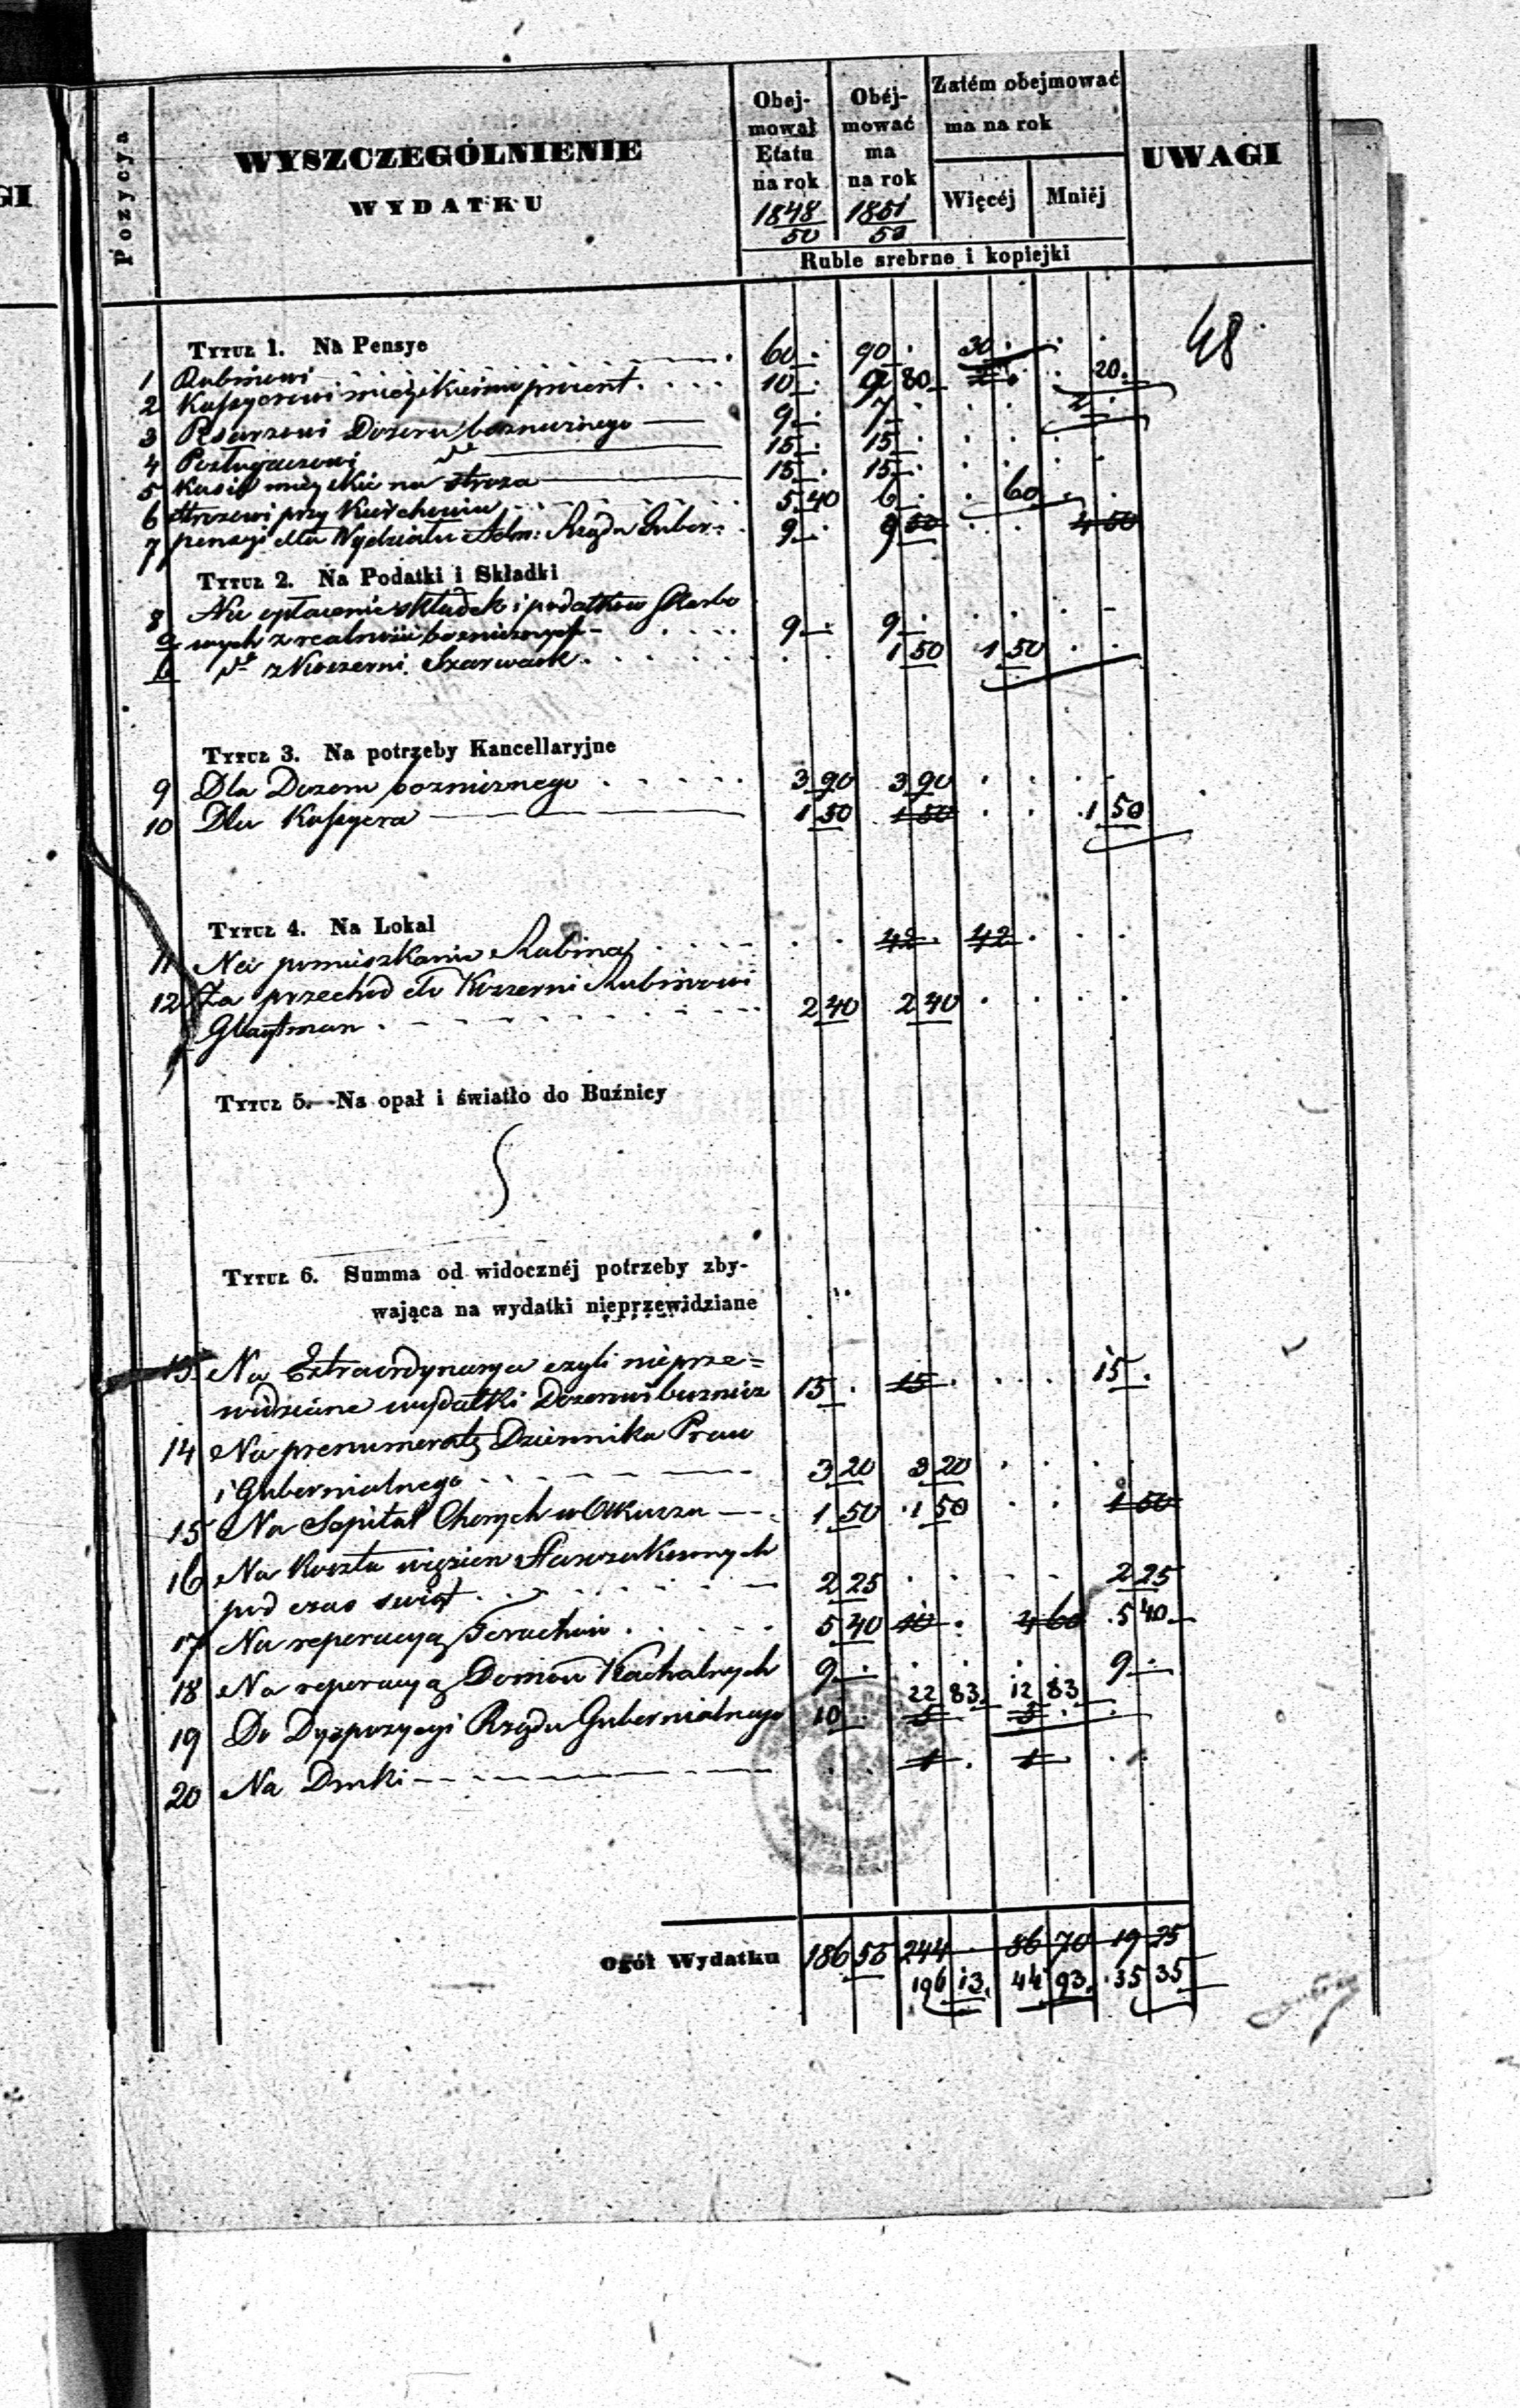 GI
Pozycya
WYSZCZEGÓLNIENIE
WYDATKU
Obej-
mował
Etatu
na rok
1848/50
Obéj-
mować
ma
na rok
1851/53
Zatém obejmować
ma na rok
Więcéj
Mniéj
UWAGI
Ruble srebrne i kopiejki
48
Tytuł 1. Na Pensye
1 Rabinowi 60 . 90 . 30 .
2 Kassyerowi miejskiemu procent 10 . 9 80 20.
3 Pisarzowi Dozoru bożniczego 9 . 7 . 2 .
4 15 . 15 .
5 Kassie miejskiej na stroza 15 . 15 .
6 Strozowi przy Kierchowie 5 40 6 . 60
7 pensyi dla Wydziału Adm: Rządu Guber= 9 . 9 50 4 50
Tytuł 2. Na Podatki i Składki
8 Na opłacenie składek i podatków Skarbo
a wych z realności bożnicznych 9 . 9 .
b dto z Koszerni Szarwark 1 50 1 50
Tytuł 3. Na potrzeby Kancellaryjne
9 Dla Dozoru bożnicznego 3 90 3 90
10 Dla Kassyera 1 50 1 50 1 50
Tytuł 4. Na Lokal
11 Na pomieszkanie Rabina 42 . 42 .
12 Za przechod do Koszerni Rabinowi
2 40 2 40
Tytuł 5. Na opał i światło do Buźnicy
Tytuł 6. Summa od widocznéj potrzeby zby-
wająca na wydatki nieprzewidziane
13 Na Extraordynarya czyli nieprze=
widziane wydatki Dozorowi buznicz 15 . 15 . 15 .
14 Na prenumeratę Dziennika Praw
i Gubernialnego 3 20 3 20
15 Na Szpital Chorych w Olkuszu 1 50 1 50 1 50
16 Na Koszta więzien Starozakonnych
pod czas swiąt 2 25 2 25
17 Na reperacyą 5 40 10 . 4 60 5 40
18 Na reperacyą Domów Kachalnych 9 . 9 .
22 83 12 83
19 Do Dyspozycyi Rządu Gubernialnego 10 . 5 5 .
20 Na Druki 1 . 1
Ogół Wydatku 186 55 244 . 86 70 19 25
196 13. 44 93. 35 35